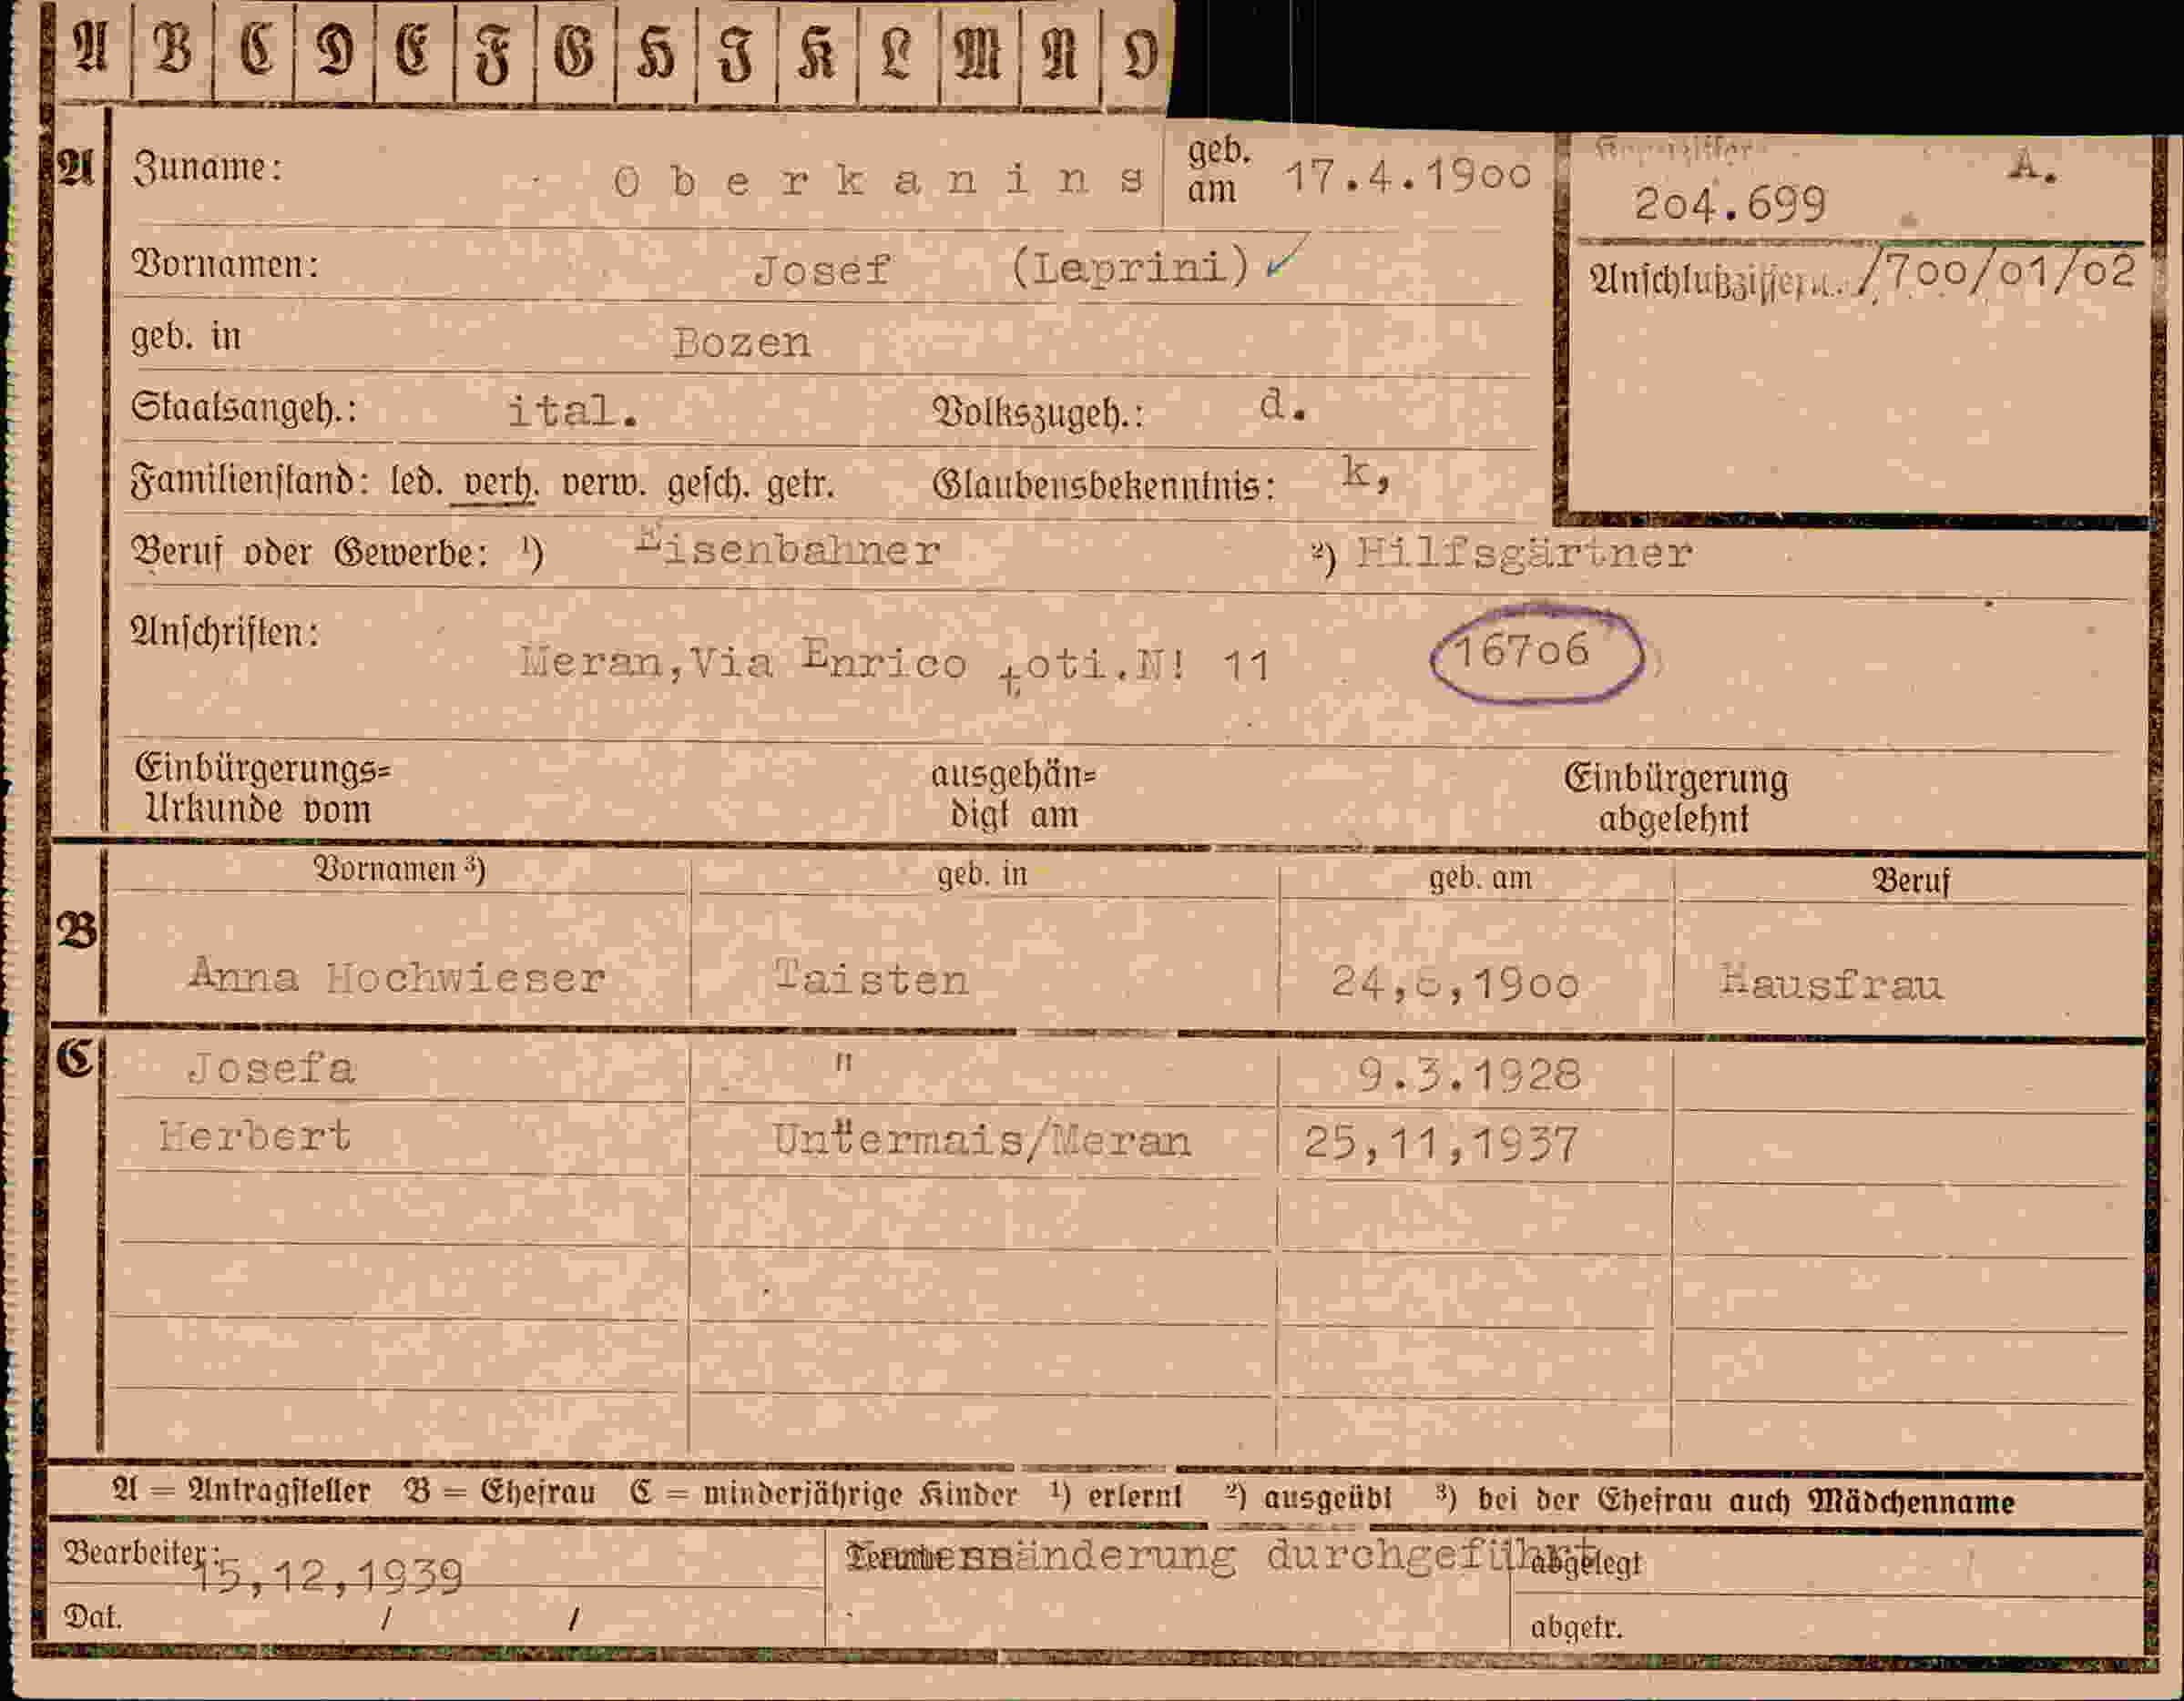 A B C D E F G H I K L M N O
A Zuname: Oberkanins geb. am 17.4.1900
A.
204.699
Vornamen: Josef (Leprini) ✓
Anschlußziffern. /700/01/02
geb. in Bozen
Staatsangeh.: ital. Volkszugeh.: d.
Familienstand: led. verh. verw. gesch. getr. Glaubensbekenntnis: k,
Beruf oder Gewerbe: ¹) Eisenbahner ²) Hilfsgärtner
Anschriften: Meran,Via Enrico toti.N! 11 16706
Einbürgerungs= ausgehän= Einbürgerung
Urkunde vom digt am abgelehnt
Vornamen ³) geb. in geb. am Beruf
B
Anna Hochwieser Taisten 24, ,1900 Hausfrau
C Josefa " 9.3.1928
Herbert Untermais/Meran 25,11,1937
A = Antragsteller B = Ehefrau C = minderjährige Kinder ¹) erlernt ²) ausgeübt ³) bei der Ehefrau auch Mädchenname
Bearbeiter: 15,12,1939 änderung durchgeführt abgelegt
Dat. / / abgetr.